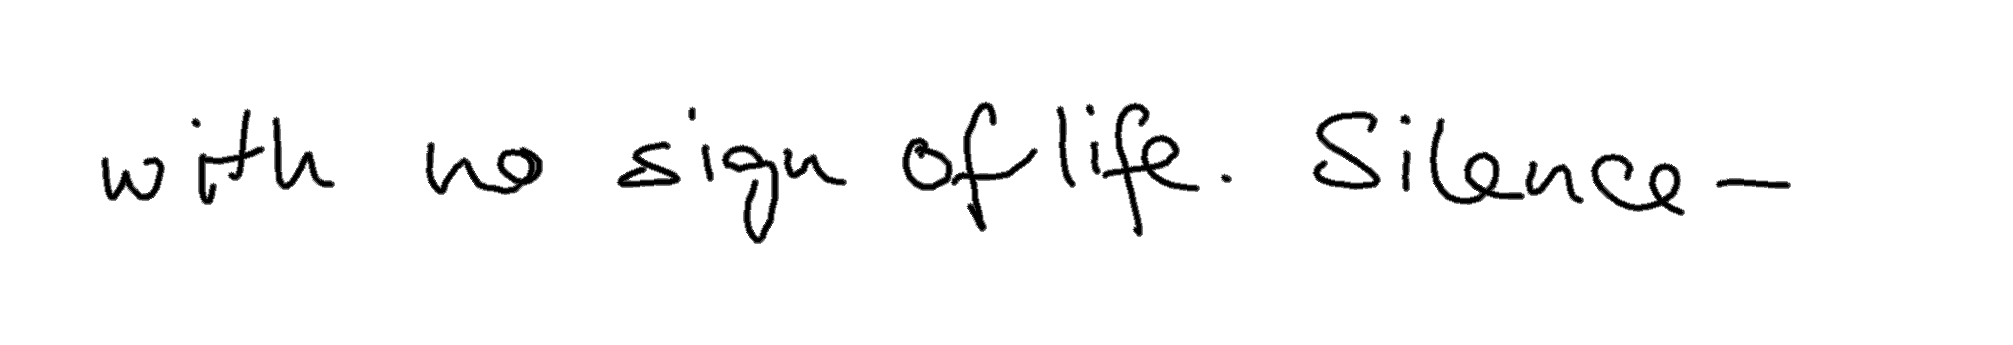 with no sign of life. Silence -